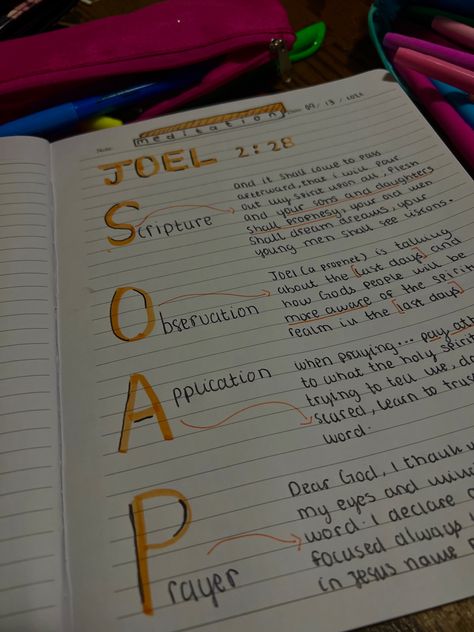 meditation
09/13/202
JOEL 2:28
Scripture
and it shall come to pass
afterward, that i will pour
out my spirit upon all flesh
and your sons and daughters
shall prophesy, your old men
shall dream dreams, your
young men shall see visions.
Observation
JOEL (a prophet) is talking
about the [last days] and
how Gods people will be
more aware of the spirit
realm in the [last days]
Application
when praying... pay at
to what the holy spiri
trying to tell we, d
scared, learn to trus
word.
Prayer
Dear God, I thank y
my eyes and min
word. i declare
focused always
in Jesus name